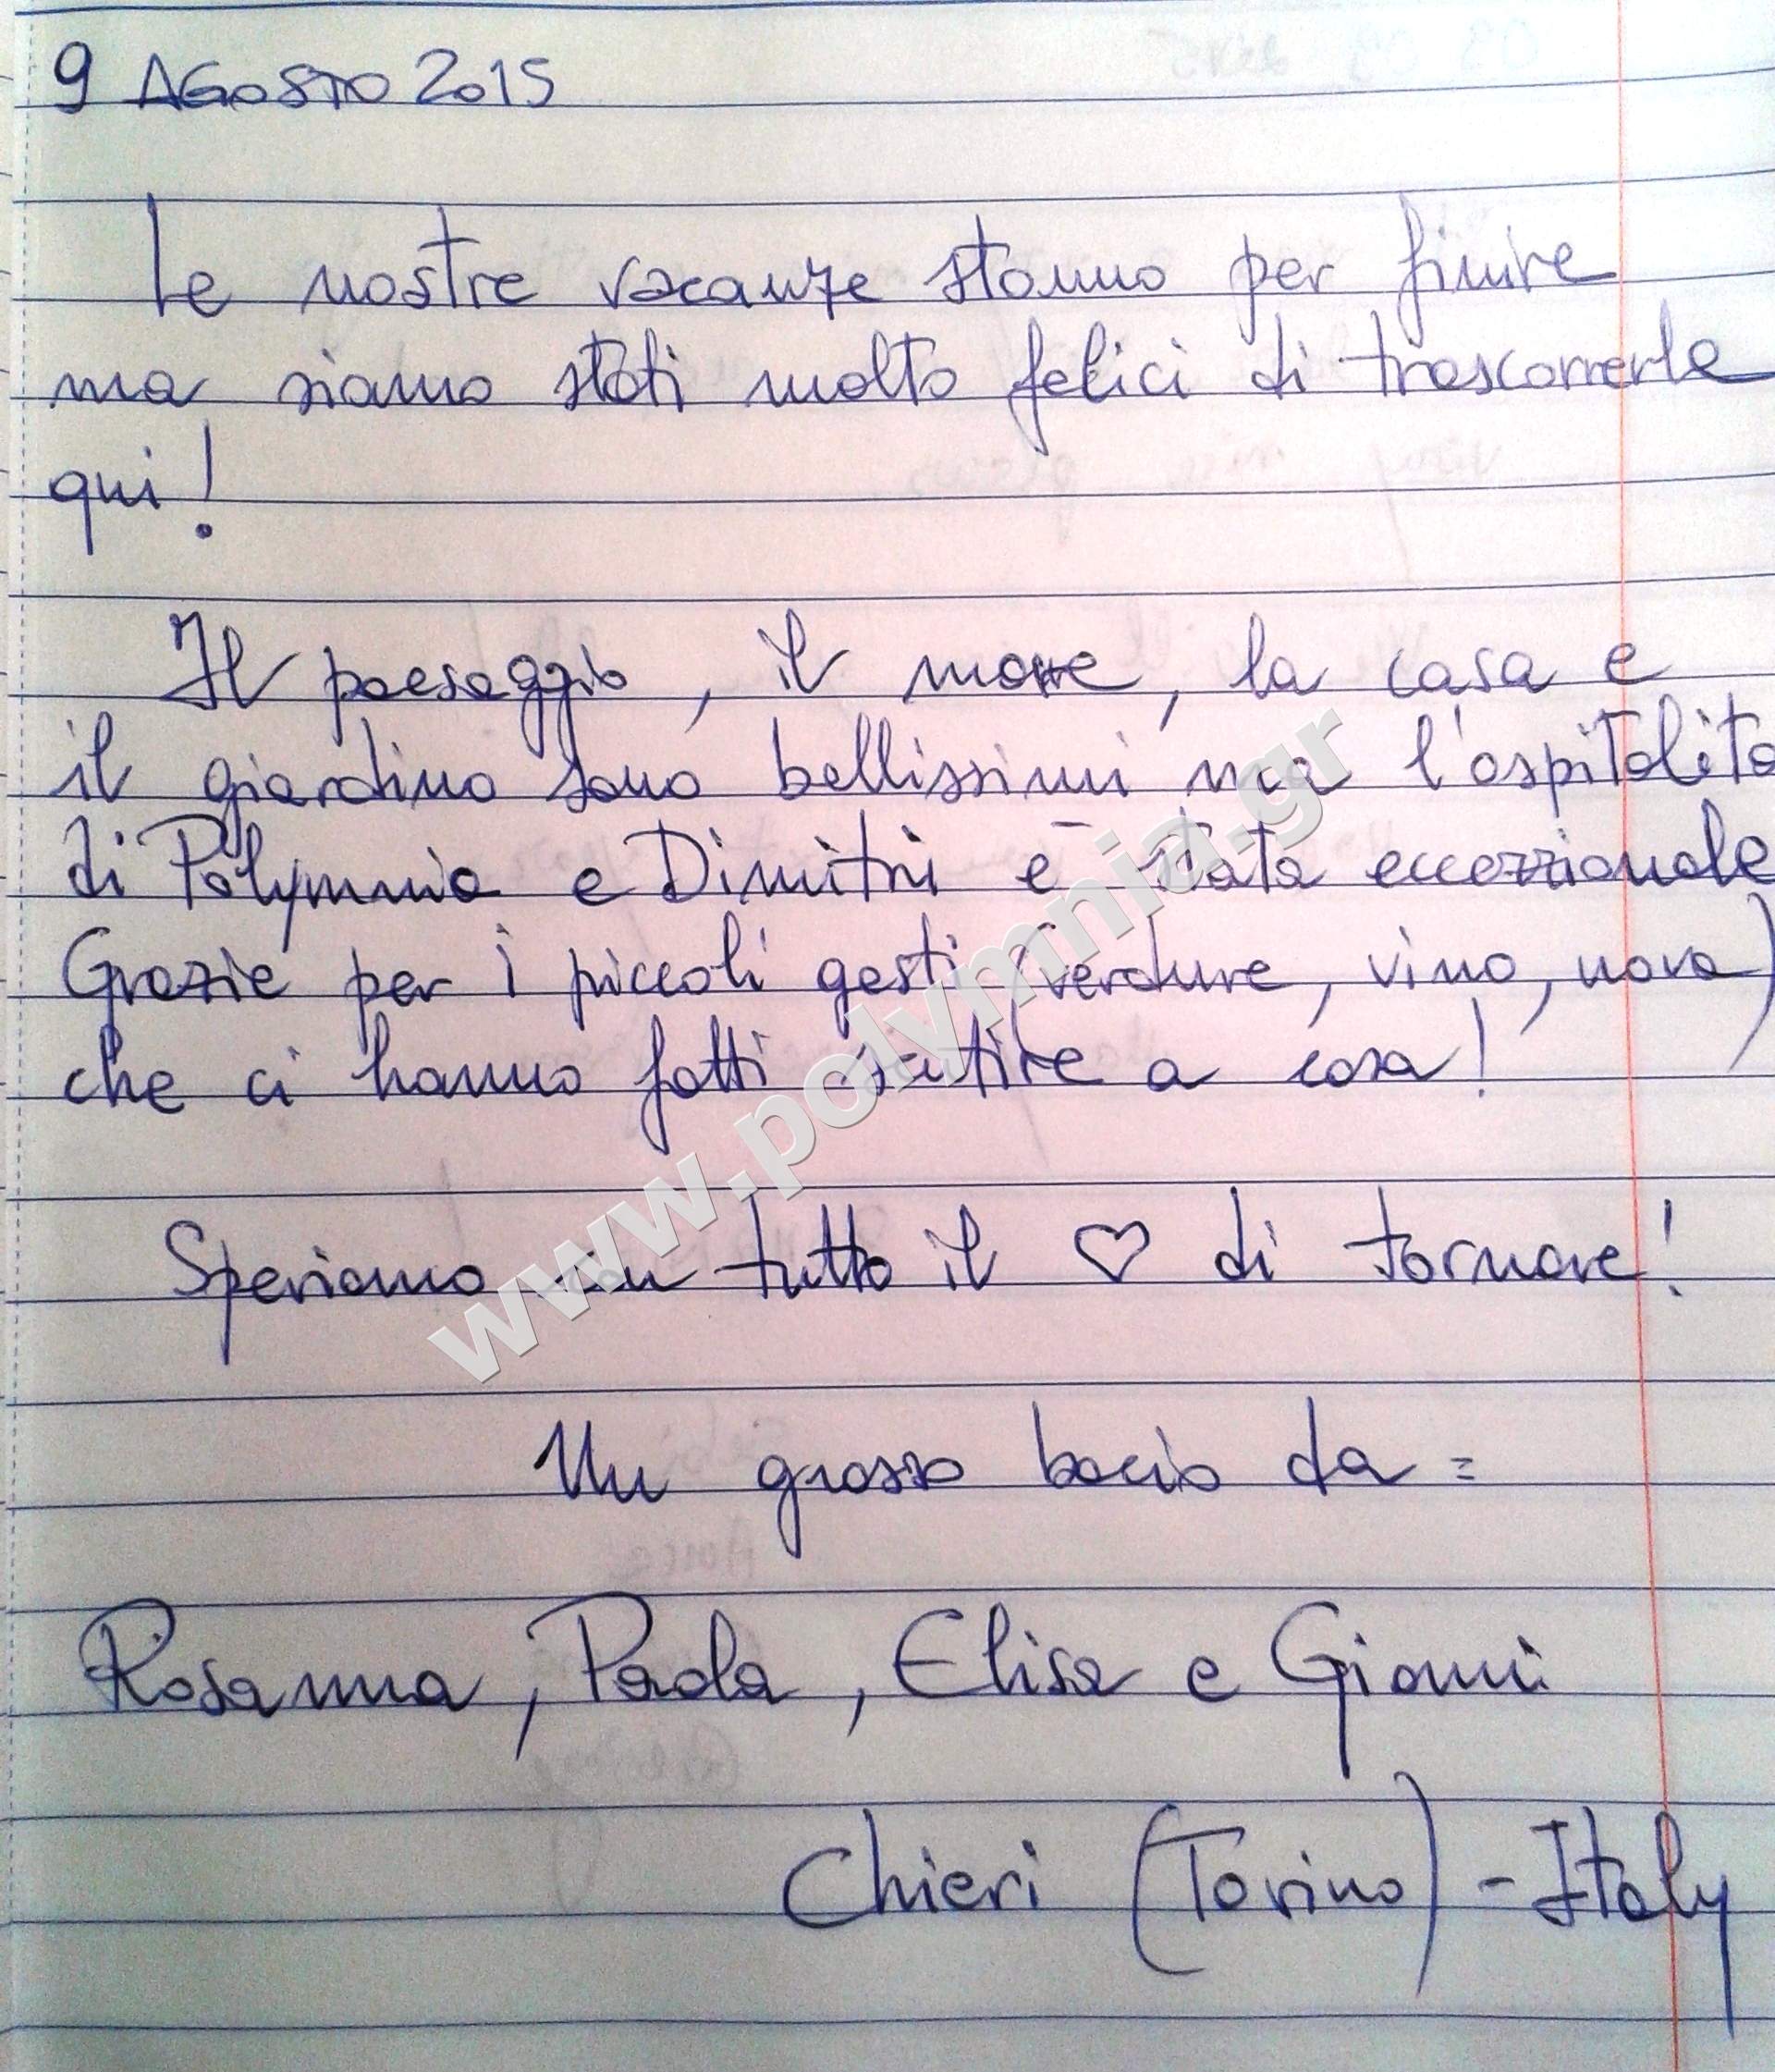 9 AGOSTO 2015
Le nostre vacanze stanno per finire
ma siamo stati molto felici di trascorrerle
qui!
Il paesaggio, il mare, la casa e
il giardino sono bellissimi ma l'ospitalità
di Polymnia e Dimitri è stata eccezzionale
Grazie per i piccoli gesti (verdure, vino, uova)
che ci hanno fatti sentire a casa!
Speriamo con tutto il ♡ di tornare!
Un grosso bacio da =
Rosanna, Paola, Elisa e Gianni
Chieri (Torino) - Italy
www.polymnia.gr